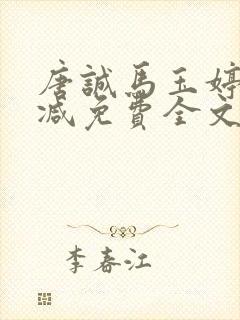 唐誠馬玉婷
減免費全文
李春江